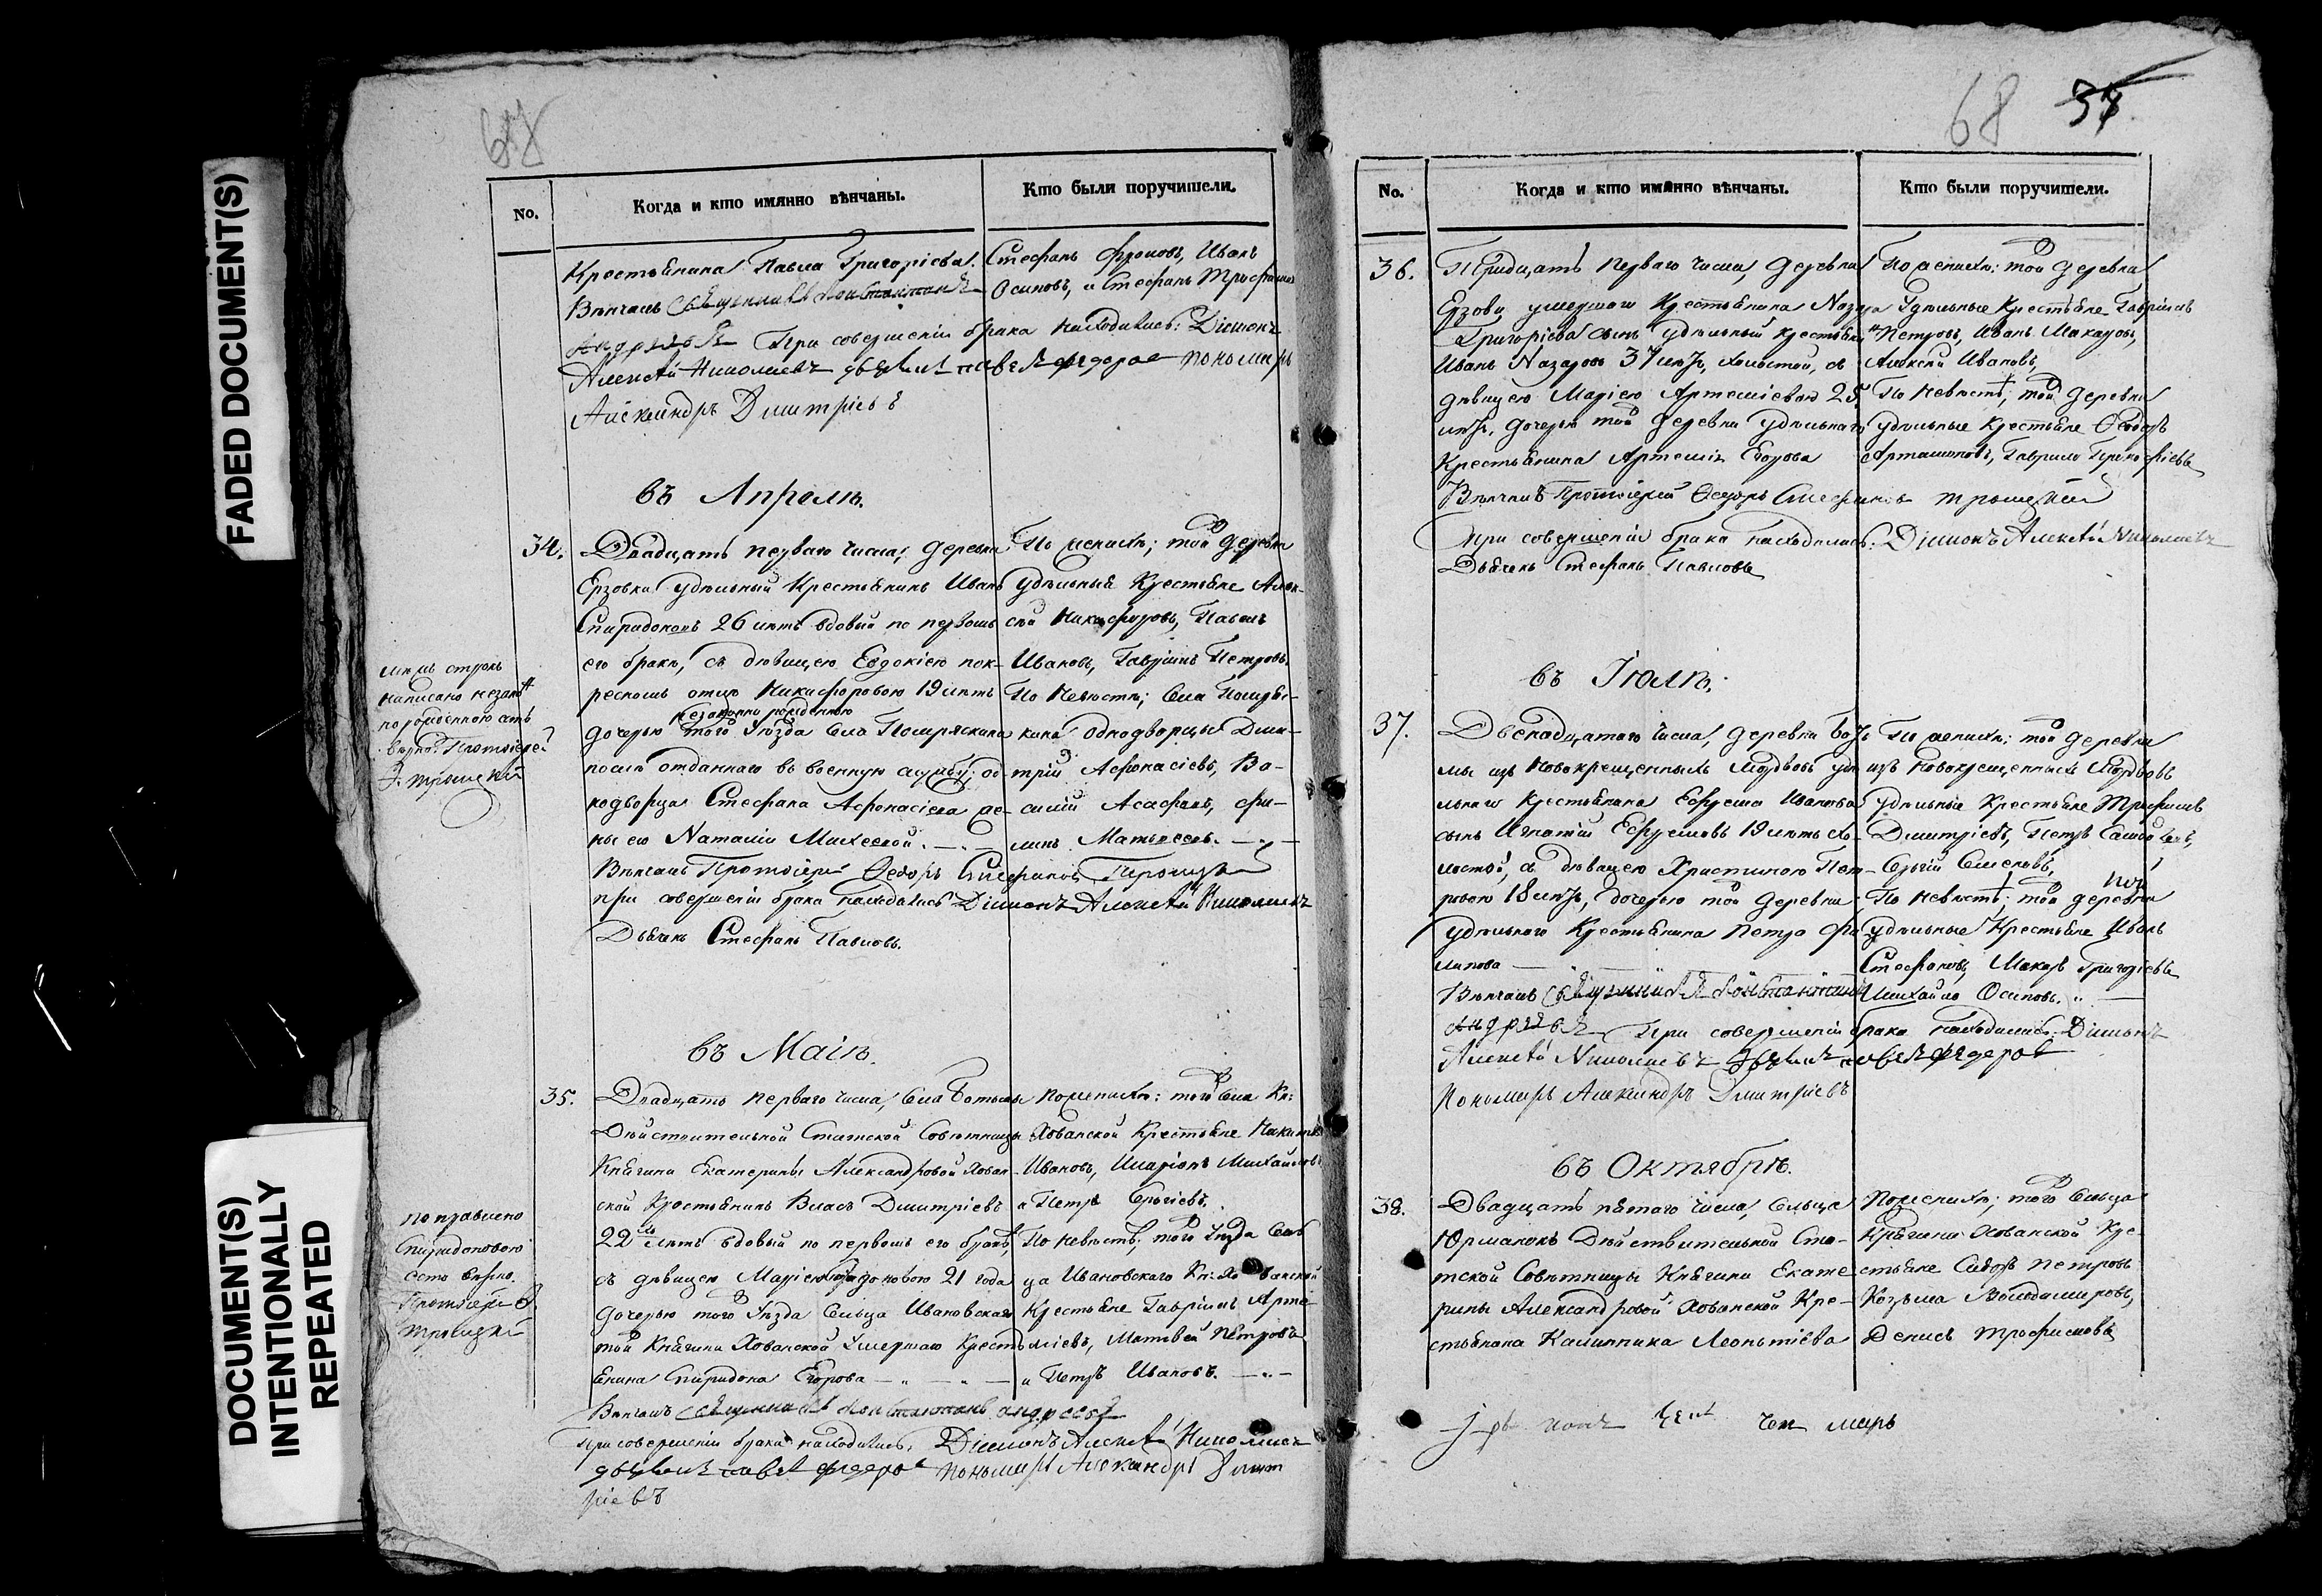 FADED DOCUMENT(S)
DOCUMENT(S)
INTENTIONALLY
REPEATED
67
No.
Когда и кто имянно вѣнчаны.
Кто были поручители.
Крестьянина Павла Григорьева.
Вѣнчалъ Священникъ Константинъ
Андреевъ При совершеніи брака находились: Діаконъ
Алексѣй Николаевъ дьячекъ павелъ федоровъ пономарь
Александръ Дмитріевъ
Стефанъ Иванъ
Осиповъ, и Стефанъ Трофимовъ
въ Апрелѣ.
34.
Двадцать перваго числа, деревни
Ерзовки удѣльный Крестьянинъ Иванъ
Спиридоновъ 26 лѣтъ вдовый по первомъ
его бракѣ, съ дѣвицею Евдокіею по к-
рестномъ отцѣ Никифоровою 19 лѣтъ
незаконно рожденною
дочерью того уѣзда села Помряскина
послѣ отданнаго въ военную службу од-
нодворца Стефана Афонасіева же-
ны его Наталіи Михеевой.
Вѣнчалъ Протоіерей Ѳедоръ Стефановъ Троицкій
при совершеніи брака находились Діаконъ Алексѣй Николаевъ
Дьячекъ Стефанъ Павловъ.
По женихѣ; той деревни
удѣльныя Крестьяне Алек-
сѣй Никифоровъ, Павелъ
Ивановъ, Гаврилъ Петровъ.
По Невѣстѣ; села Помряс-
кина однодворцы Дми-
трій Афонасіевъ, Ва-
силій Асафовъ, Фи-
липъ Матвеевъ.
строкъ
написано незакон
но рожденною
вѣрно. Протоіерей
Ѳ. Троицкій
въ Маіѣ.
35.
Двадцать перваго числа, села Ботьмы
Дѣйствительной Статской Совѣтницы
Княгини Екатерины Александровой Хован-
ской Крестьянинъ Власъ Дмитріевъ
22 лѣтъ вдовый по первомъ его бракѣ,
съ дѣвицею Маріею Спиридоновою 21 года
дочерью того уѣзда Сельца Ивановскаго
той Княгини Хованской умершаго Кресть-
янина Спиридона Егорова
Вѣнчалъ священникъ Константинъ андреевъ
При совершеніи брака находились, Діаконъ Алексѣй Николаевъ
дьячекъ павелъ федоровъ пономарь Александръ Дмит
ріевъ
По женихѣ: того села Кн:
Хованской Крестьяне Никита
Ивановъ, Иларіонъ Михайловъ
и Петръ Сергіевъ.
По невѣстѣ; того уѣзда Сель
ца Ивановскаго Кн: Хованской
Крестьяне Гаврилъ Арте-
міевъ, Матвей Петровъ
и Петръ Ивановъ.
поправлено
Спиридоновою
есть вѣрно.
Протоіерей Ѳ.
Троицкій
68 37
No.
Когда и кто имянно вѣнчаны.
Кто были поручители.
36.
Тридцать перваго числа, деревни
Ерзовки умершаго Крестьянина Назара
Григорьева сынъ удѣльный крестьянинъ
Иванъ Назаровъ 37 лѣтъ, холостой, съ
дѣвицею Маріею Артеміевою 25.
лѣтъ, дочерью той деревни удѣльнаго
Крестьянина Артемія Егорова
Вѣнчалъ Протоіерей Ѳедоръ Стефановъ Троицкій
При совершеніи брака находились: Діаконъ Алексѣй Николаевъ
Дьячекъ Стефанъ Павловъ
По женихѣ: той деревни
Удѣльные Крестьяне Гаврилъ
Петровъ, Иванъ Макаровъ,
Алексѣй Ивановъ,
По невѣстѣ; той деревни
удѣльные крестьяне Ѳедоръ
Артамоновъ, Гаврило Прокофіевъ
въ Іюлѣ.
37.
Двенадцатаго числа, деревни
мы изъ Новокрещенныхъ Мордвовъ удѣ
льнаго Крестьянина Ефрема Иванова
сынъ Игнатій Ефремовъ 19 лѣтъ хо-
лостой, съ дѣвицею Христиною Пет-
ровою 18 лѣтъ, дочерью той деревни
удѣльнаго Крестьянина Петра Фи
липова
Вѣнчалъ Священникъ Константинъ
Андреевъ При совершеніи брака находились: Діаконъ
Алексѣй Николаевъ дьячекъ павелъ федоровъ
Пономарь Александръ Дмитріевъ
По женихѣ; той деревни
изъ Новокрещенныхъ Мордвовъ
Удѣльные Крестьяне Трофимъ
Дмитріевъ, Петръ
Сергій Семеновъ,
По Невѣстѣ; той деревни
удѣльные Крестьяне Иванъ
Стефановъ, Макаръ Григорьевъ
Михайло Осиповъ.
въ Октябрѣ.
38.
Двадцать пятаго числа, Сельца
Юрманокъ Дѣйствительной Ста-
тской Совѣтницы Княгини Екате
рины Александровой Хованской Кре-
стьянина Калинника Леонтіева
По женихѣ; того Сельца
Княгини Хованской Кре-
стьяне Сидоръ Петровъ
Козьма Володимеровъ,
Денисъ Трофимовъ